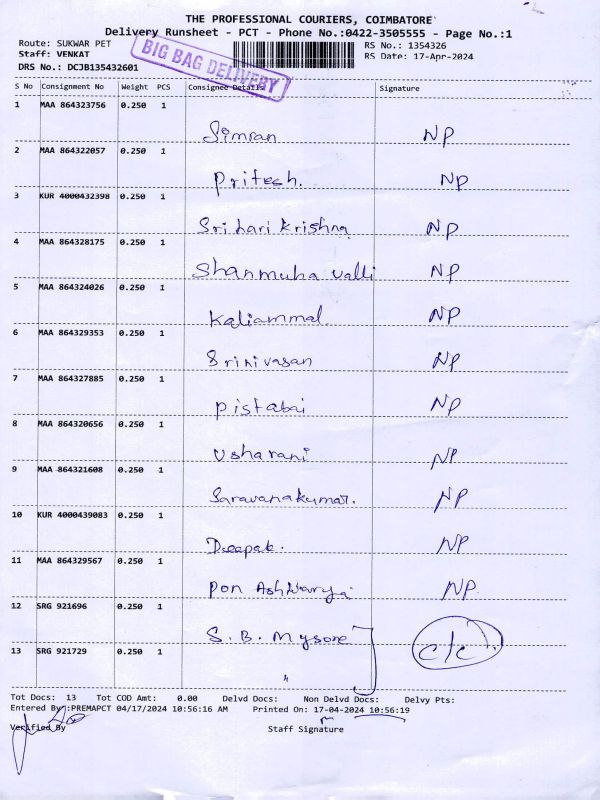 THE PROFESSIONAL COURIERS, COIMBATORE
Delivery Runsheet - PCT - Phone No.:0422-3505555 - Page No.:1
Route: SUKWAR PET
RS No.: 1354326
Staff: VENKAT
RS Date: 17-Apr-2024
DRS No.: DCJB135432601
BIG BAG DELIVERY
S No Consignment No Weight PCS Consignee Details Signature
1 MAA 864323756 0.250 1 Simran NP
2 MAA 864322057 0.250 1 Pritech. NP
3 KUR 4000432398 0.250 1 Sri hari krishna NP
4 MAA 864328175 0.250 1 Shanmuha valli NP
5 MAA 864324026 0.250 1 Kaliammal. NP
6 MAA 864329353 0.250 1 Srinivasan NP
7 MAA 864327885 0.250 1 Pistabai NP
8 MAA 864320656 0.250 1 Usharani NP
9 MAA 864321608 0.250 1 Saravanakumar. NP
10 KUR 4000439083 0.250 1 Deepak. NP
11 MAA 864329567 0.250 1 Pon Ashwarya NP
12 SRG 921696 0.250 1 S. B. Mysore c/c
13 SRG 921729 0.250 1 "
Tot Docs: 13 Tot COD Amt: 0.00 Delvd Docs: Non Delvd Docs: Delvy Pts:
Entered By :PREMAPCT 04/17/2024 10:56:16 AM Printed On: 17-04-2024 10:56:19
Verified By Staff Signature